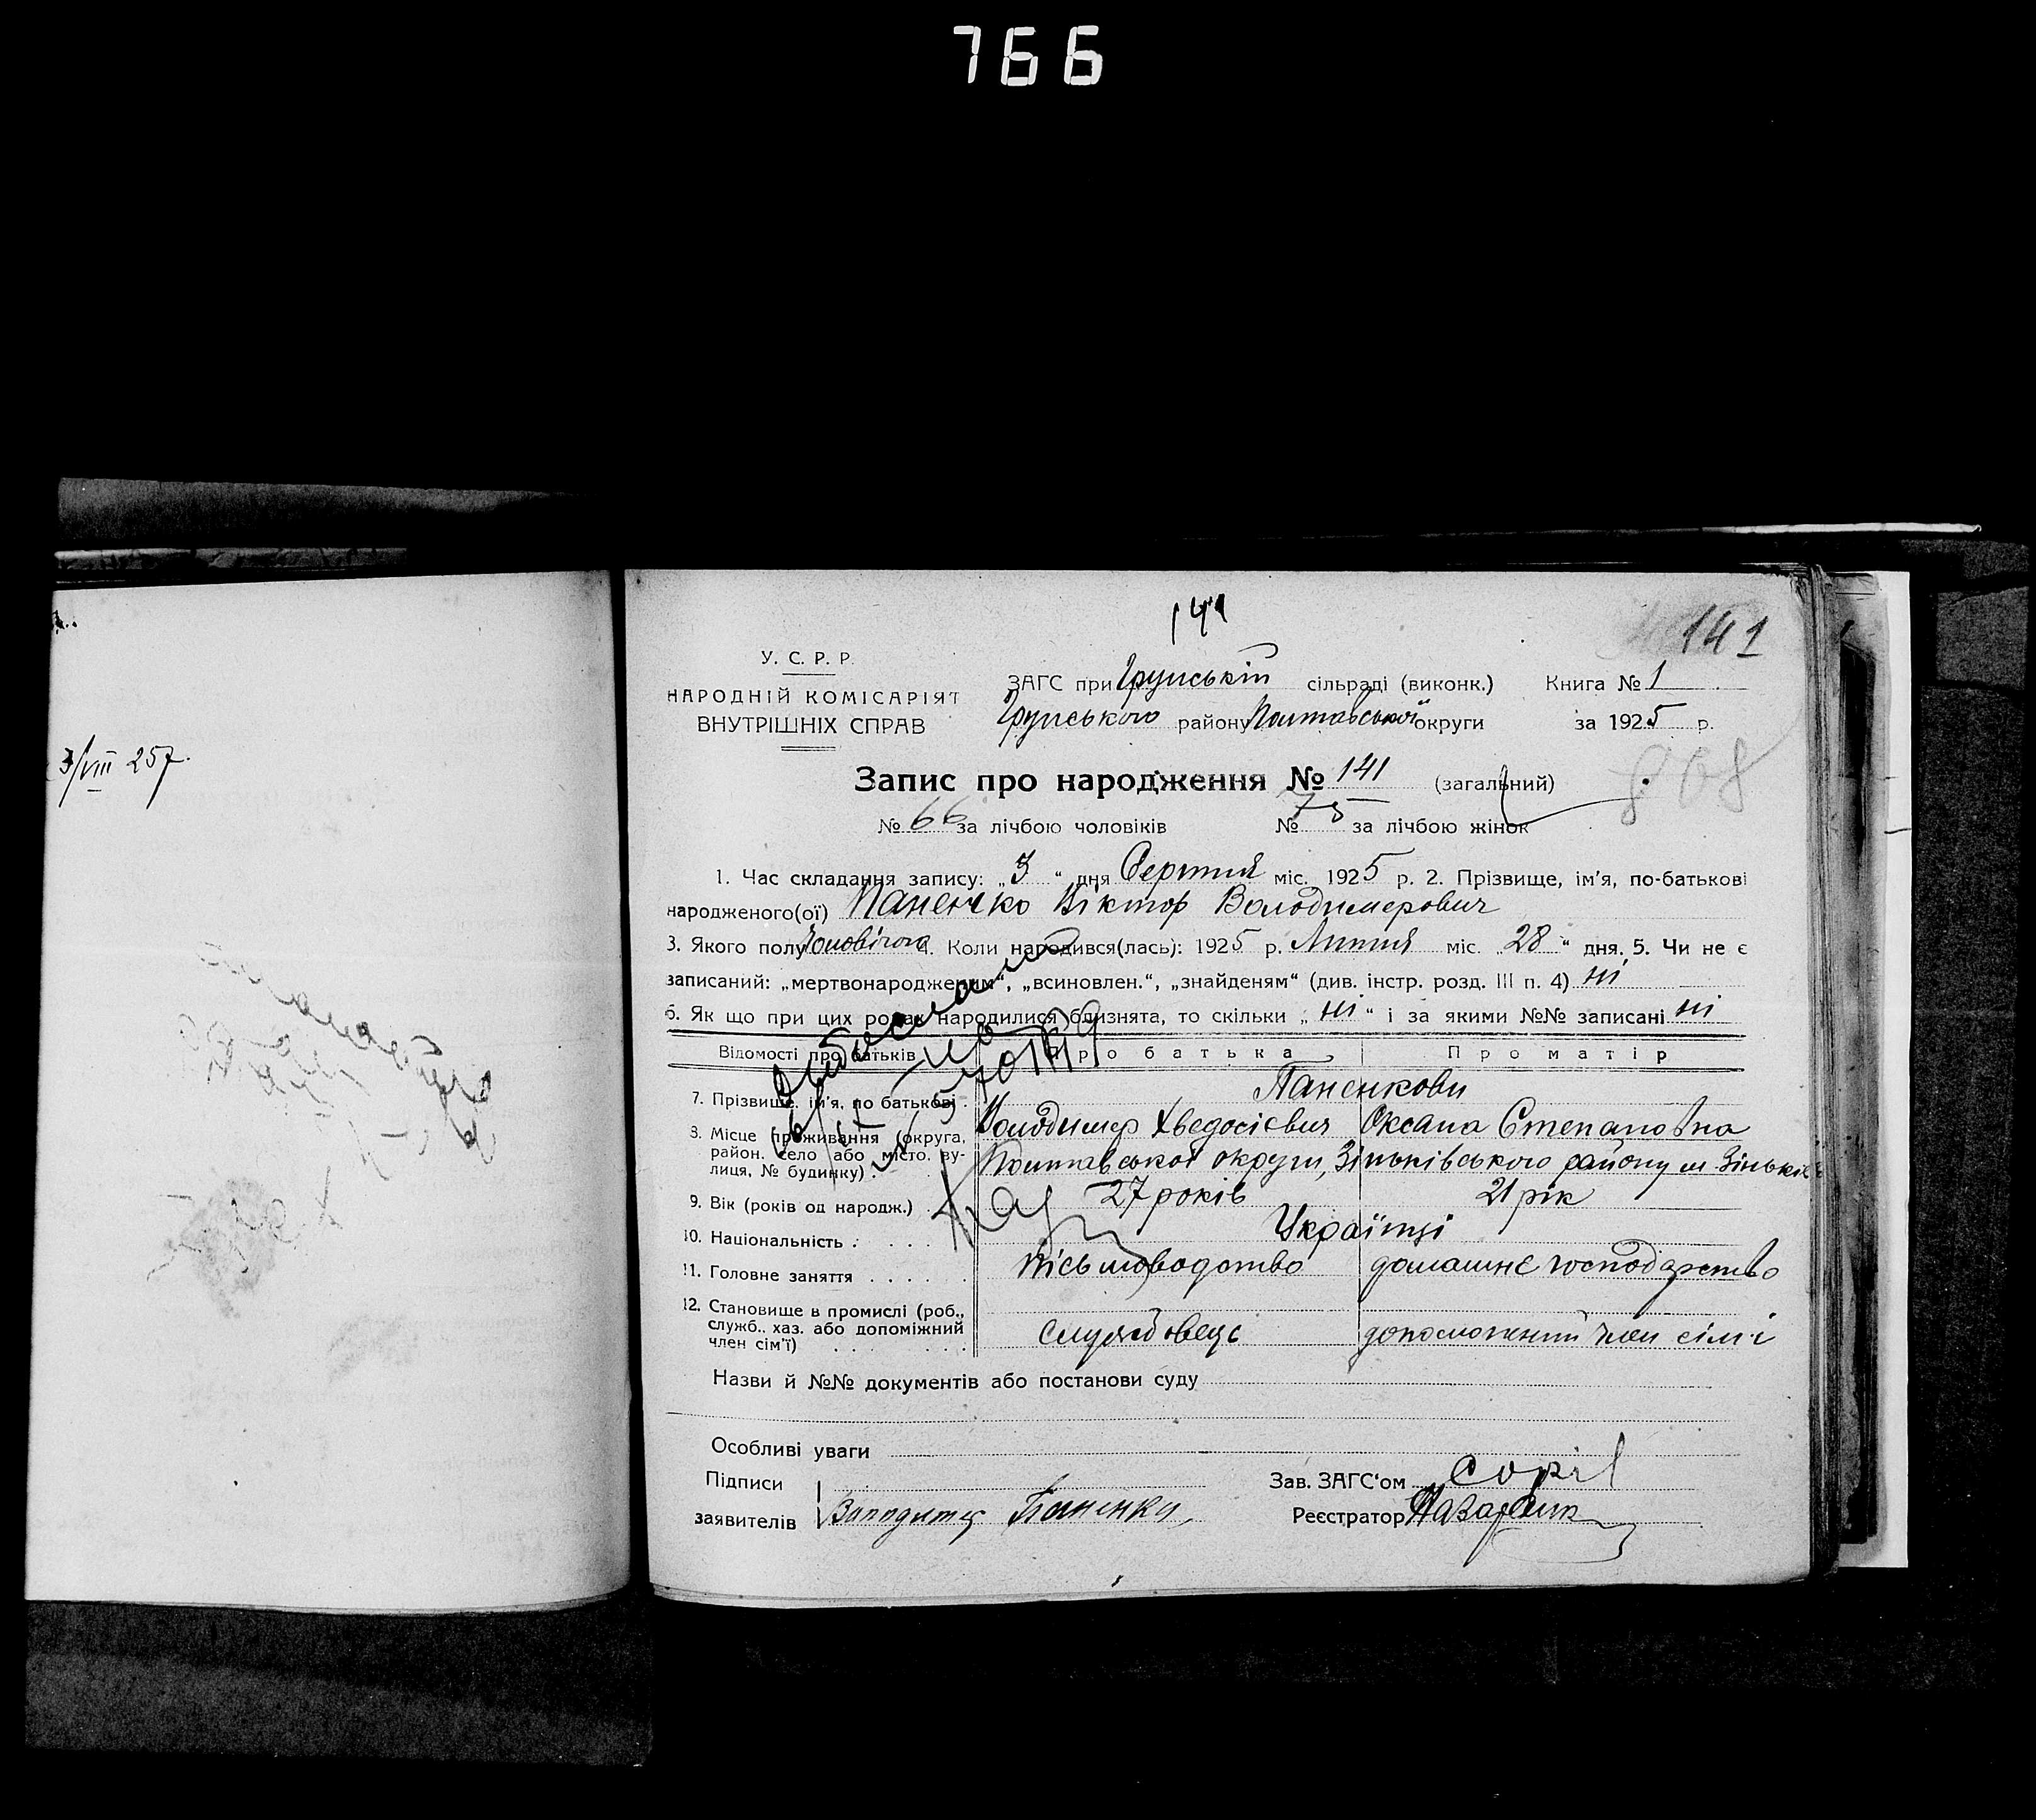 766
141
141
У. С. Р. Р.
НАРОДНІЙ КОМІСАРІЯТ
ВНУТРІШНІХ СПРАВ
ЗАГС при Грунській сільраді (виконк.) Книга № 1
Грунського району Полтавської округи за 1925 р.
3/VIII 257.
Запис про народження № 141 (загальний)
868
№ 66 за лічбою чоловіків № 75 за лічбою жінок
1. Час складання запису: „3“ дня Серпня міс. 1925 р. 2. Прізвище, ім’я, по-батькові
народженого(ої) Паненко Віктор Володимерович
3. Якого полу Чоловічого 4. Коли народився(лась): 1925 р. Липня міс. „28“ дня. 5. Чи не є
записаний: „мертвонародженим“, „всиновлен.“, „знайденям“ (див. інстр. розд. III п. 4) ні
6. Як що при цих родах народилися близнята, то скільки „ні“ і за якими №№ записані ні
Відомості про батьків Про батька Про матір
Паненкови
7. Прізвище, ім’я, по батькові Володимер Хведосієвич Оксана Степановна
8. Місце проживання (округа,
район, село або місто, ву-
лиця, № будинку) Полтавської округи, Зіньківського району м Зіньків
9. Вік (років од народж.) 27 років 21 рік
10. Національність Українці
11. Головне заняття письмоводство домашнє господарство
12. Становище в промислі (роб.,
служб., хаз. або допоміжний
член сім’ї) службовець допоможний член сім'ї
Назви й №№ документів або постанови суду
Особливі уваги
Підписи Зав. ЗАГС‘ом
заявителів Володимер Паненко Реєстратор